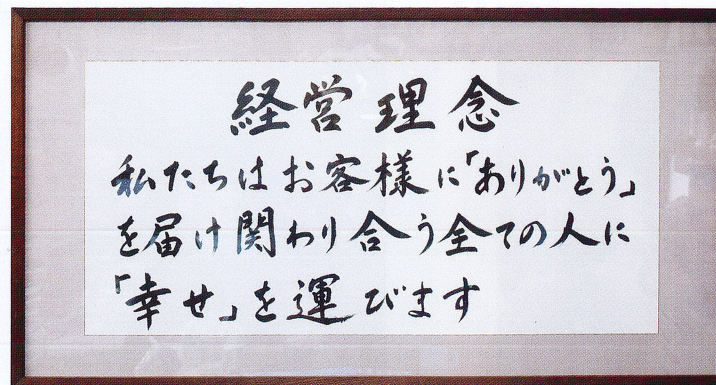 経営理念
私たちはお客様に「ありがとう」
を届け関わり合う全ての人に
「幸せ」を運びます